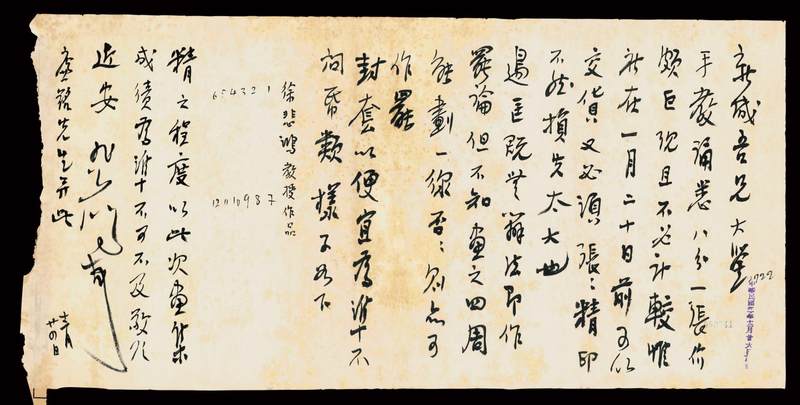 新城吾兄大鑒
手教誦悉八分一張价
頗巨現且不必計較惟
在一月二十日前可以
交貨又必須張;精印
不然損失太大也
邊匡既無辦法即作
罷論但不知畫之四周
能劃一線否;則亦可
作罷
封套以便宜為準十不
樣子如下
徐悲鴻教授作品
654321
12 11 10 9 8 7
精之程度以此次畫集
成績為準十不可不及敬頌
近安 悲鴻頓首
先生弁此
廿四日
中華民國